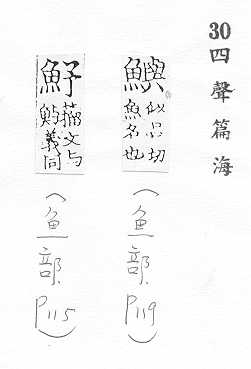 30 四聲篇海
鱮
似吕切
魚名也
(鱼部 P119)
魣
籀文与
義同
(鱼部 P115)